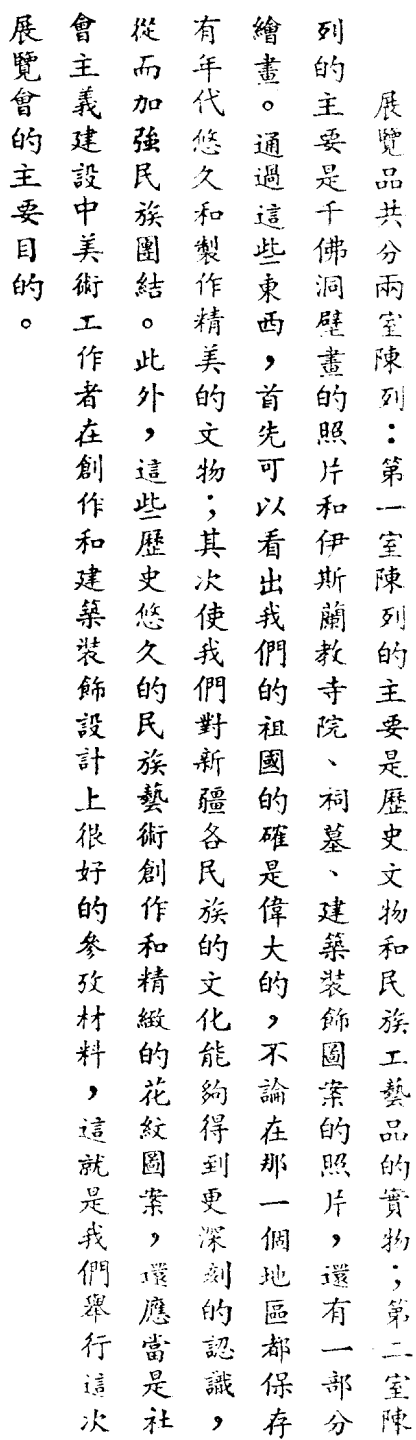 展覽品共分兩室陳列：第一室陳列的主要是歷史文物和民族工藝品的實物；第二室陳
列的主要是千佛洞壁畫的照片和伊斯蘭教寺院、祠墓、建築裝飾圖案的照片，還有一部分
繪畫。通過這些東西，首先可以看出我們的祖國的確是偉大的，不論在那一個地區都保存
有年代悠久和製作精美的文物；其次使我們對新疆各民族的文化能夠得到更深刻的認識，
從而加強民族團結。此外，這些歷史悠久的民族藝術創作和精緻的花紋圖案，還應當是社
會主義建設中美術工作者在創作和建築裝飾設計上很好的參攷材料，這就是我們舉行這次
展覽會的主要目的。